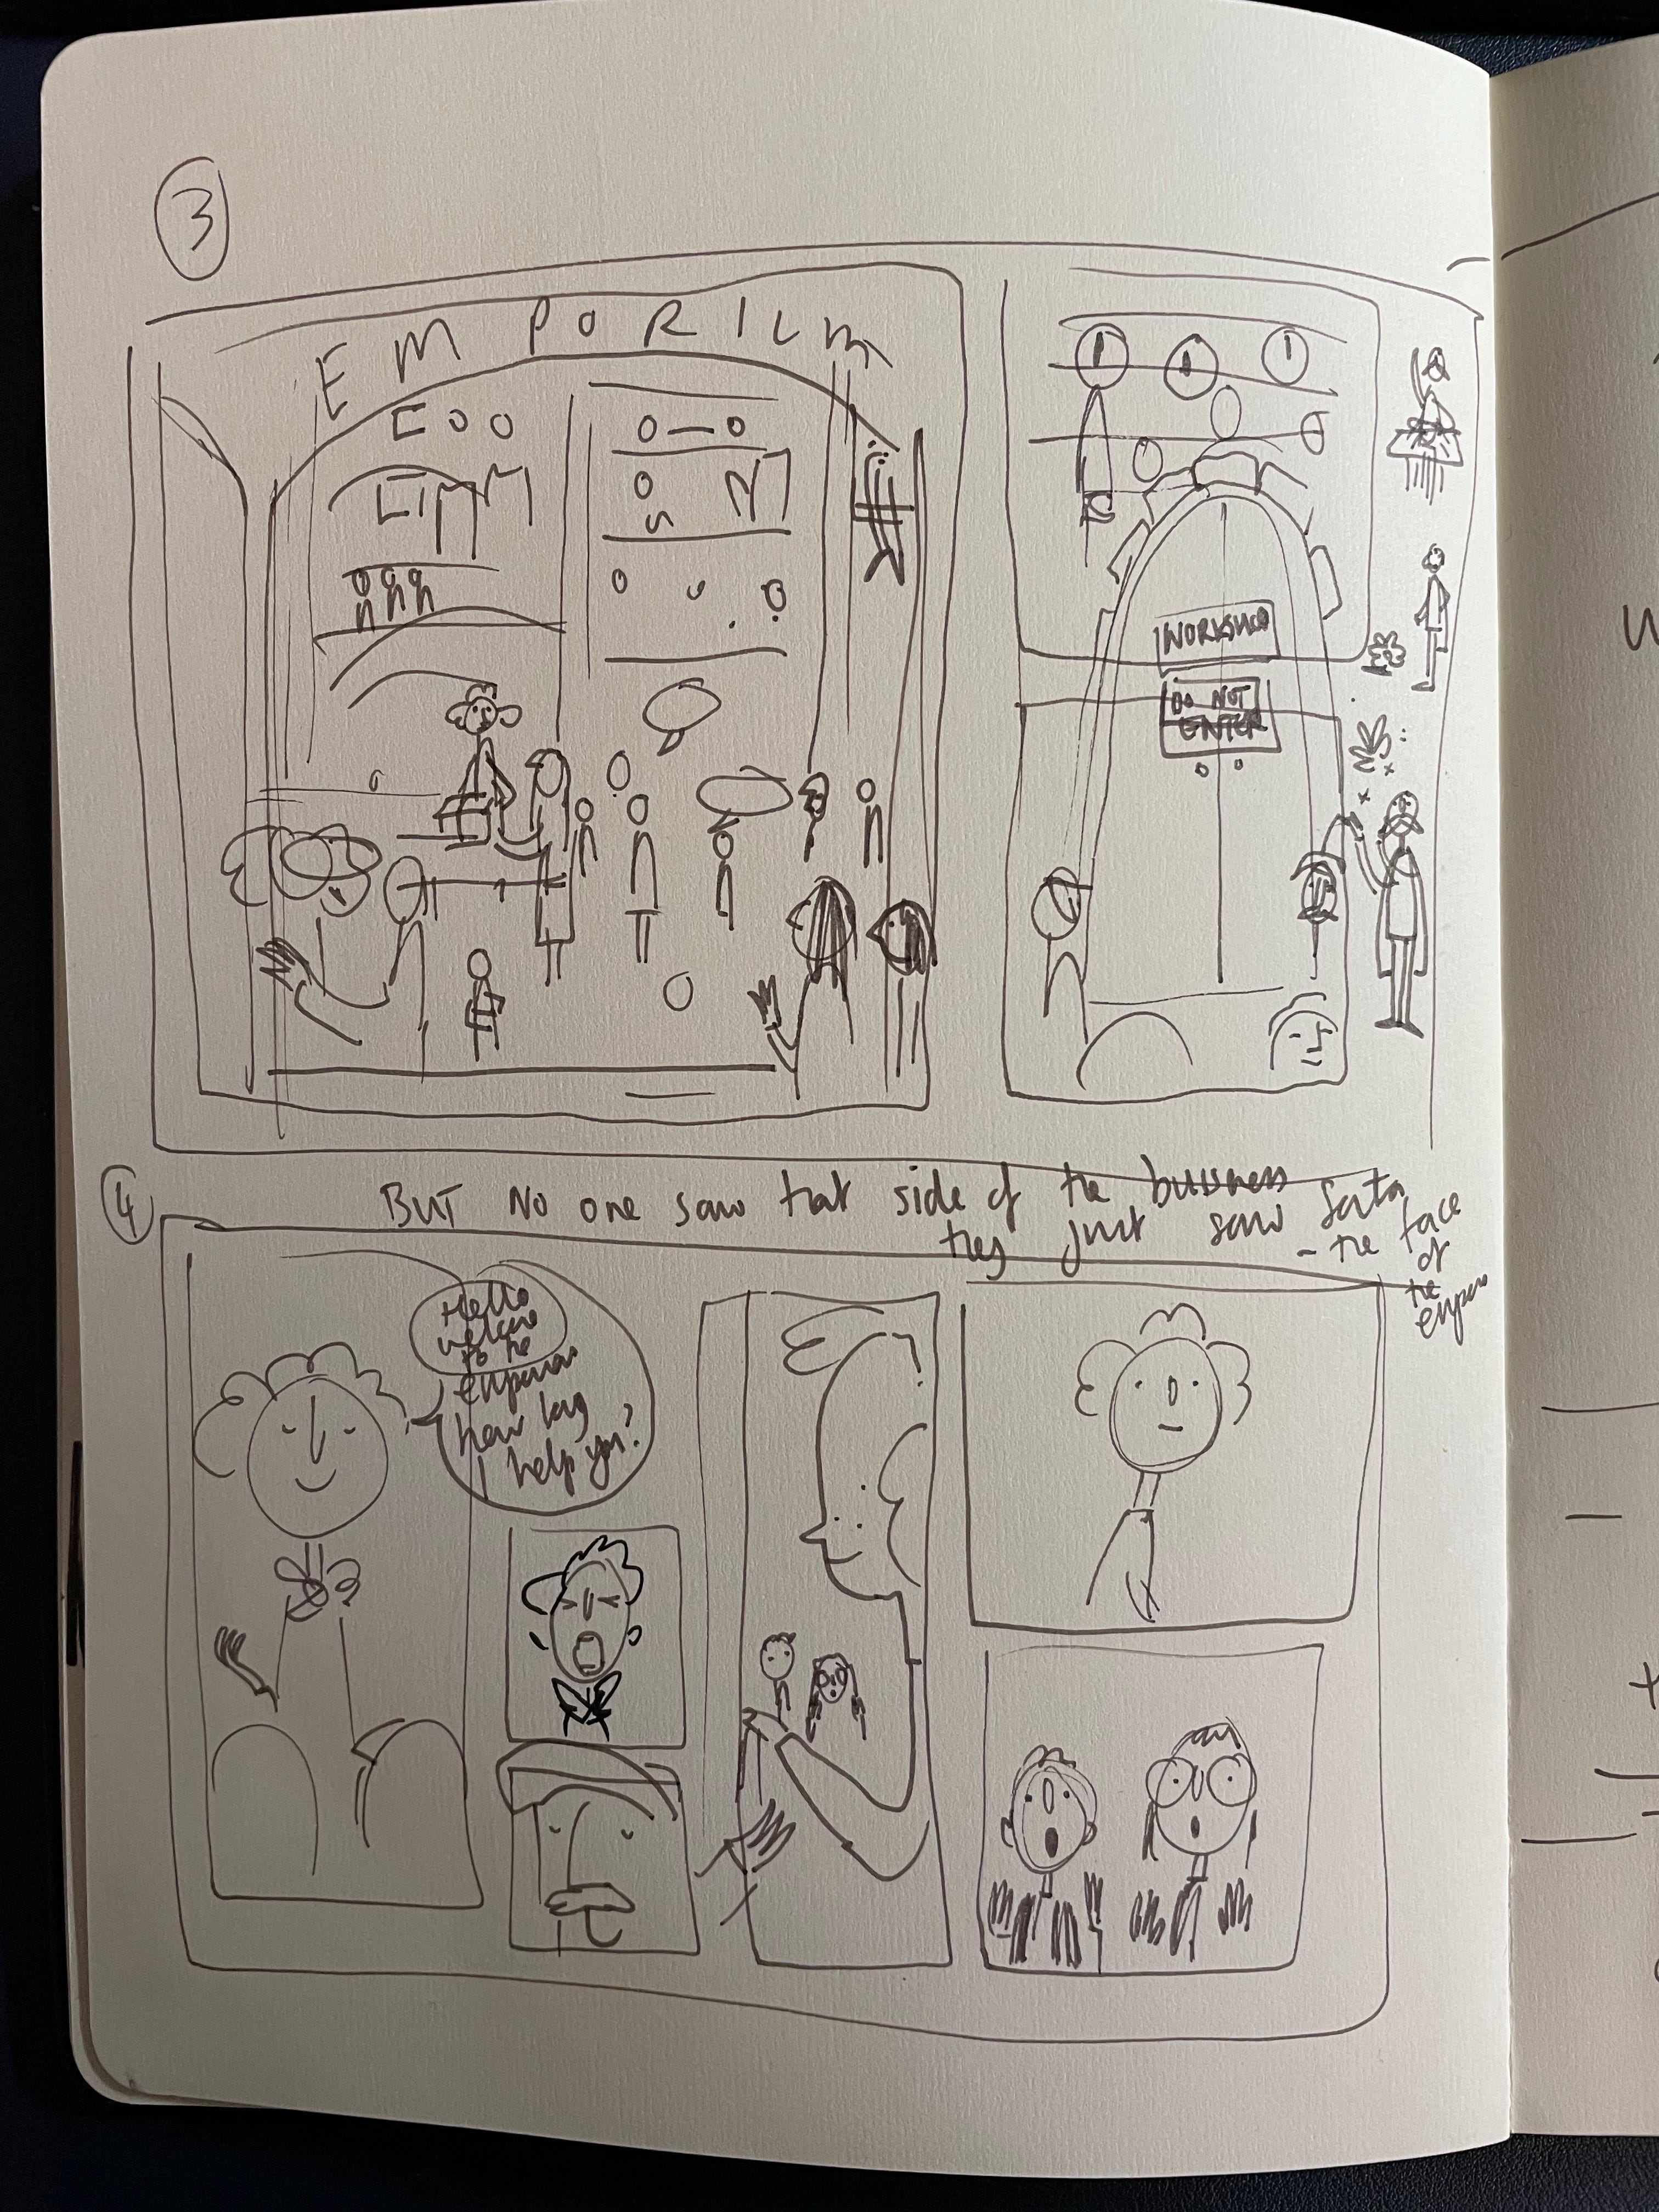 3
EMPORIUM
WORKSHOP
DO NOT
ENTER
4
BUT NO one saw that side of the bussness
they just saw
- the face
of
the
Hello
welcome
to the
how
I help you?